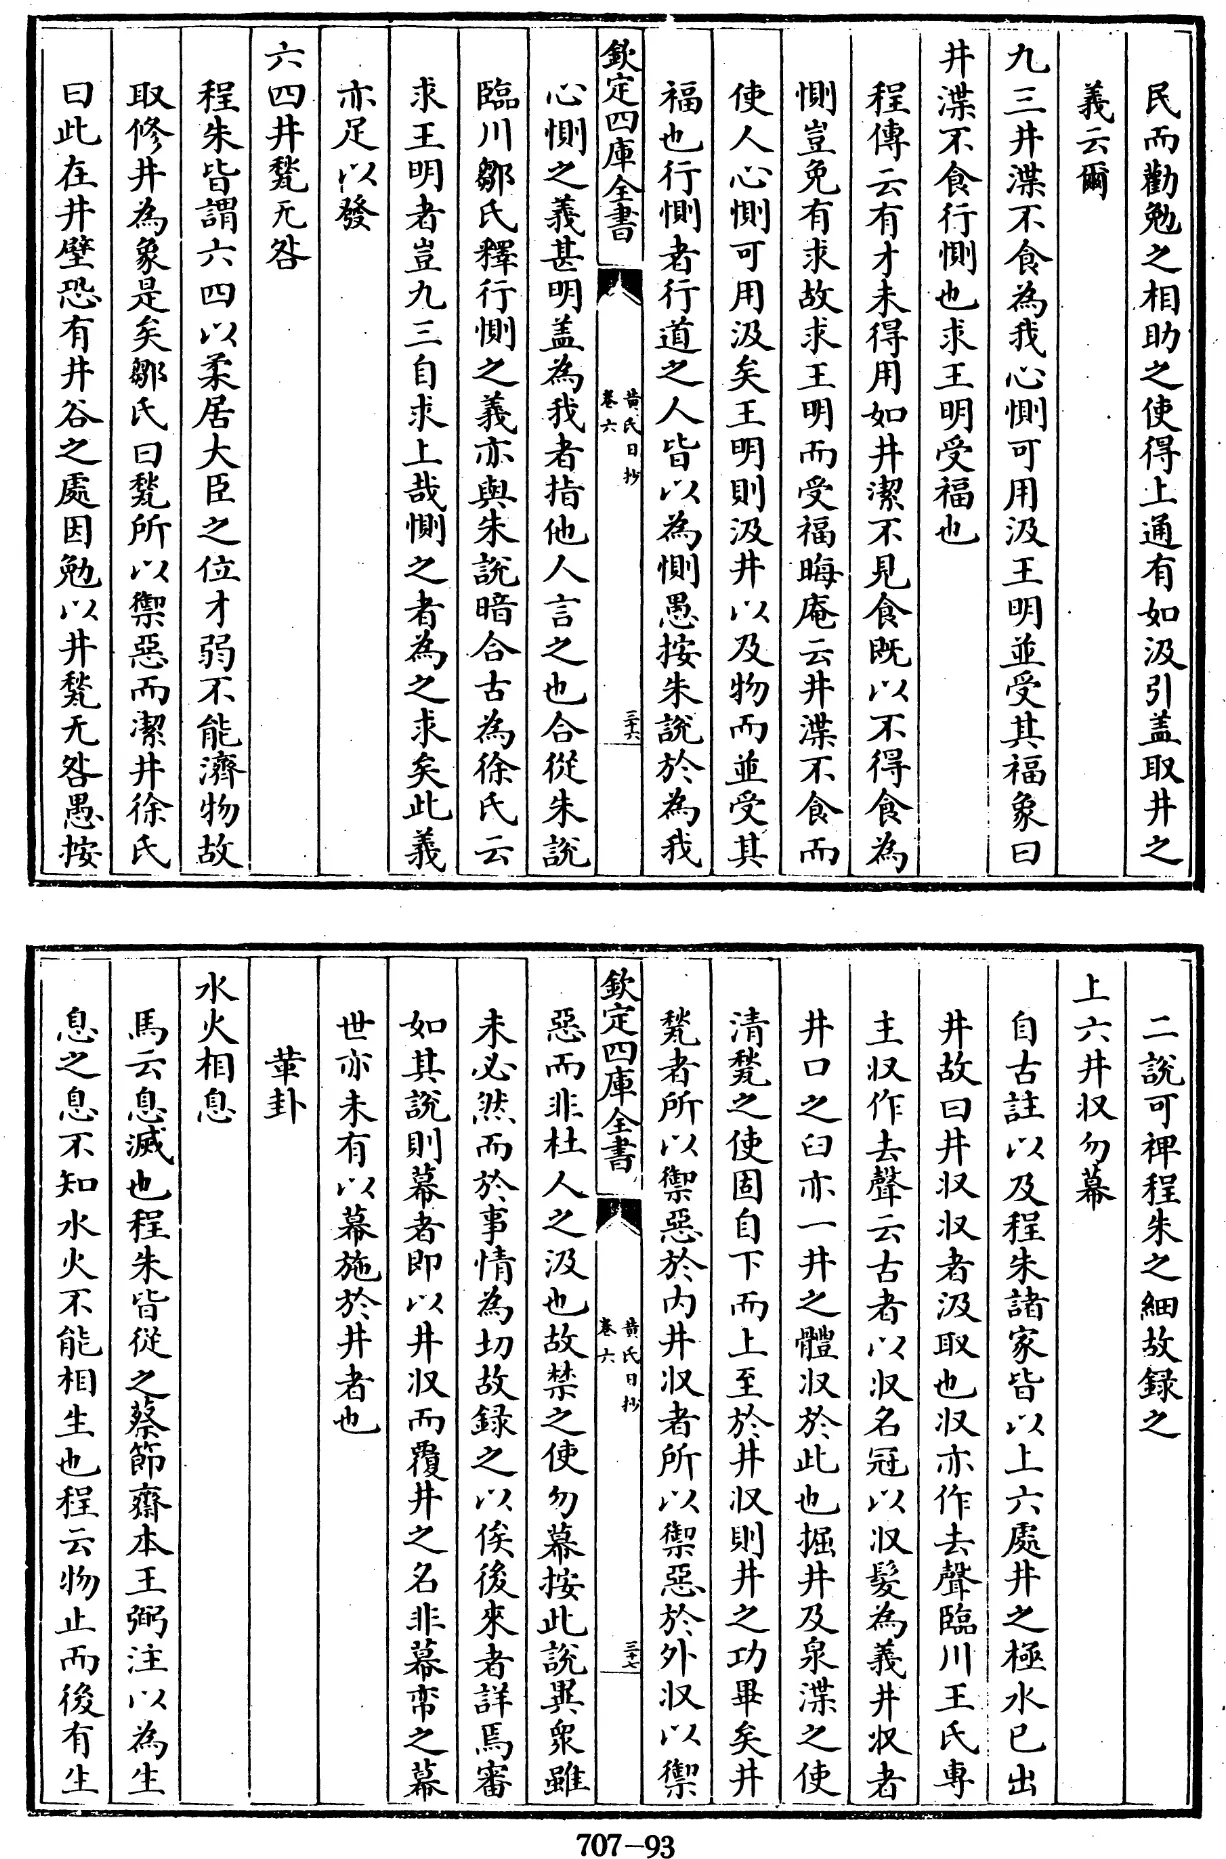 民而勸勉之相助之使得上通有如汲引盖取井之
義云爾
九三井渫不食為我心惻可用汲王明並受其福象曰
井渫不食行惻也求王明受福也
程傳云有才未得用如井潔不見食既以不得食為
惻豈免有求故求王明而受福晦庵云井渫不食而
使人心惻可用汲矣王明則汲井以及物而並受其
福也行惻者行道之人皆以為惻愚按朱說於為我
欽定四庫全書
黄氏日抄
卷六
三十六
心惻之義甚明盖為我者指他人言之也合從朱說
臨川鄒氏釋行惻之義亦與朱說暗合古為徐氏云
求王明者豈九三自求上哉惻之者為之求矣此義
亦足以發
六四井甃无咎
程朱皆謂六四以柔居大臣之位才弱不能濟物故
取修井為象是矣鄒氏曰甃所以禦惡而潔井徐氏
曰此在井壁恐有井谷之處因勉以井甃无咎愚按
二說可裨程朱之細故録之
上六井収勿幕
自古註以及程朱諸家皆以上六處井之極水已出
井故曰井収収者汲取也収亦作去聲臨川王氏專
主収作去聲云古者以収名冠以収髮為義井収者
井口之臼亦一井之體収於此也掘井及泉渫之使
清甃之使固自下而上至於井収則井之功畢矣井
甃者所以禦惡於内井収者所以禦惡於外収以禦
欽定四庫全書
黄氏日抄
卷六
三十七
惡而非杜人之汲也故禁之使勿幕按此說異衆雖
未必然而於事情為切故録之以俟後來者詳焉審
如其說則幕者即以井収而覆井之名非幕帟之幕
世亦未有以幕施於井者也
革卦
水火相息
馬云息滅也程朱皆從之蔡節齋本王弼注以為生
息之息不知水火不能相生也程云物止而後有生
707-93